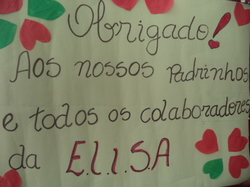 Obrigado!
Aos nossos Padrinhos
e todos os colaboradores
da E.L.I.S.A